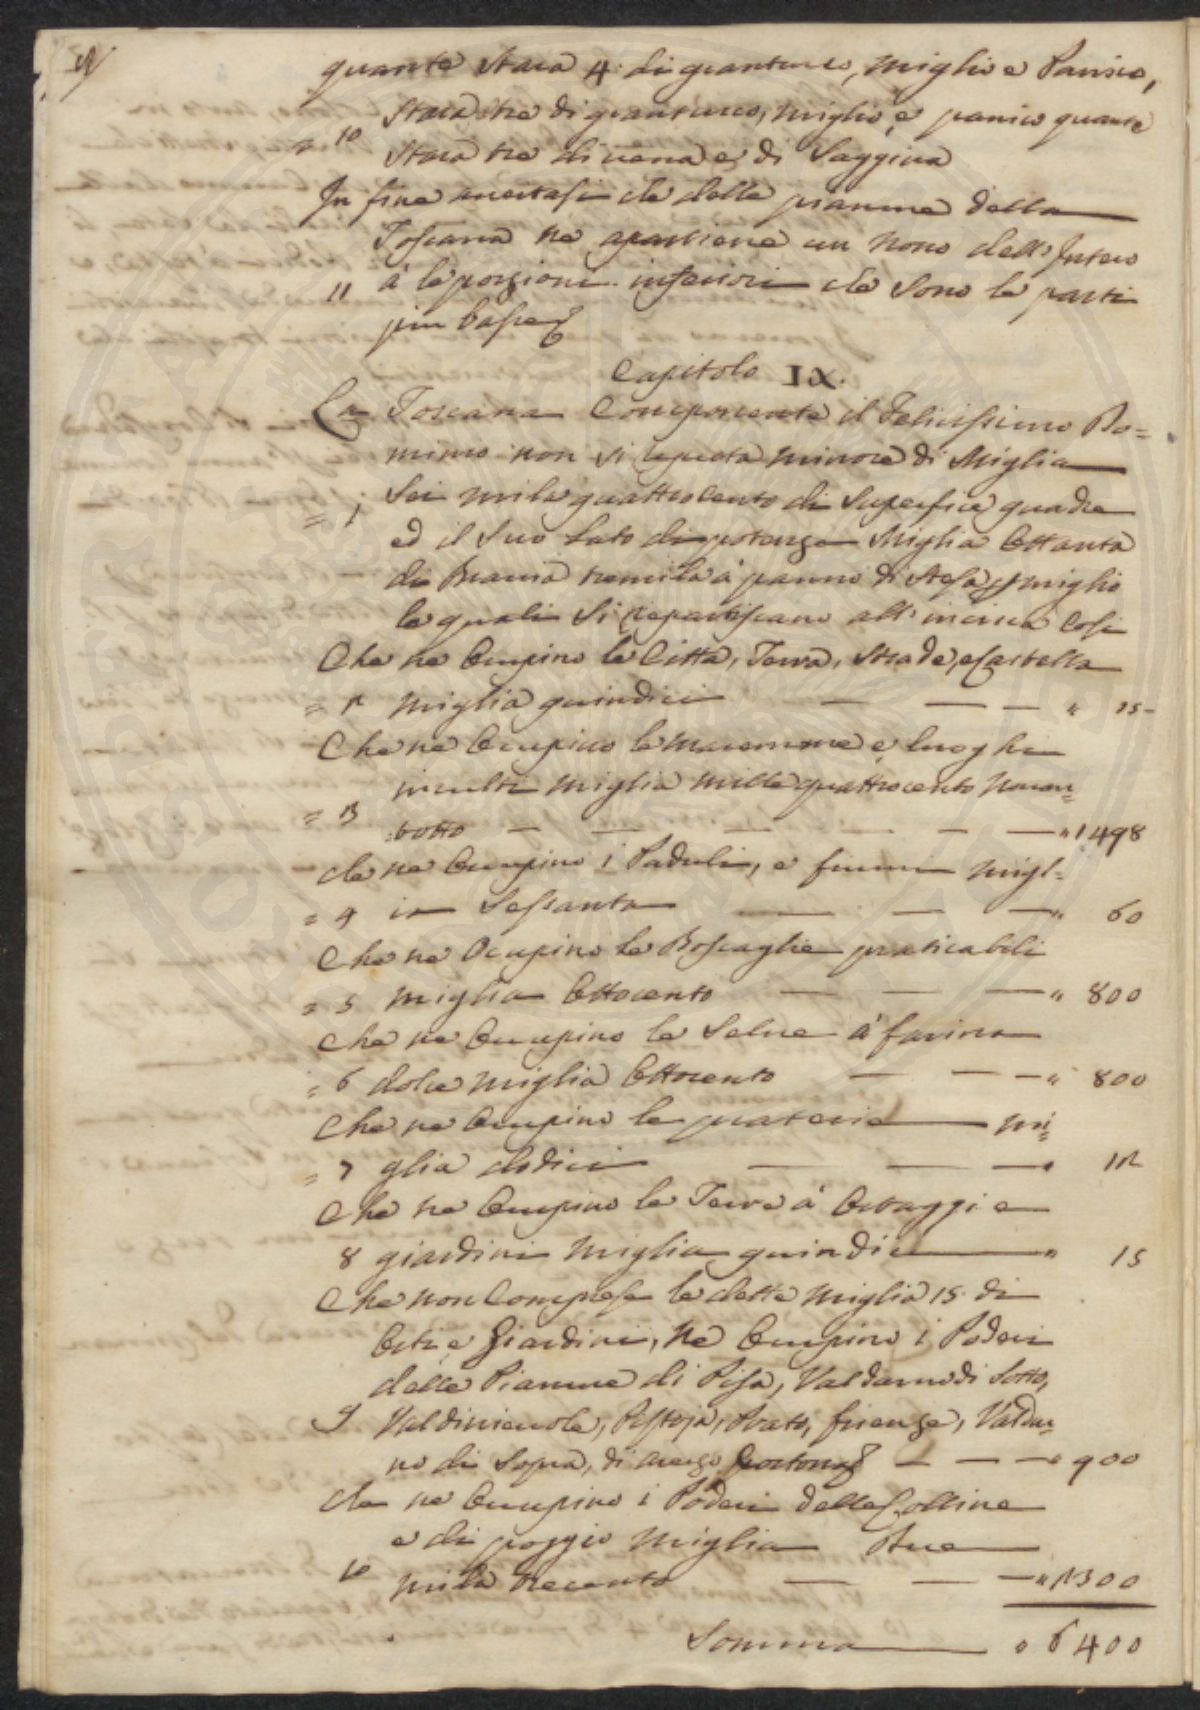 quante staia 4. di granturco, miglio e Panico,
staia tre di granturco, miglio, e panico quante
10
staia tre di vena e di Saggina
In fine accertasi che delle pianure della
Toscana ne apartiene un nono dell'Intero
11 à le porzioni inferiori che sono le parti
piu basse
Capitolo IX.
La Toscana Componente il Felicissimo Do=
minio non si reputa minore di Miglia
Sei mila quattrocento di Superficie quadre
= 1
ed il suo Lato di potenza Miglia Ottanta
di Braccia tremila à panno di Stesa miglio
le quali si repartiscano all'incirca Cosi
Che ne Occupino le Città, Terra, Strade, e Castella
= 2 miglia quindici — — — " 15-
Che ne Occupino le Maremme e luoghi
inculti miglia mille quattrocento Novan=
= 3
totto — — — — — — " 1498
che ne Occupino i Paduli, e fiumi migl=
= 4 ia Sessanta — — — " 60
Che ne Ocupino le Boscaglie praticabili
= 5 miglia Ottocento — — — " 800
Che ne Occupino le Selve à farina
= 6 dolce miglia Ottocento — — — " 800
Che ne Occupino le praterie mi=
= 7 glia dodici — — — " 12
Che ne Occupino le Terre à Ortaggi e
8 giardini miglia quindici " 15
Che non Comprese le dette miglia 15. di
Orti e Giardini, Ne Occupino i Poderi
delle Pianure di Pisa, Valdarno di Sotto,
9 Valdinievole, Pistoja, Prato, firenze, Valdar=
no di Sopra, di Arezzo Cortona — — — " 900
che ne Occupino i Poderi delle Colline
e di poggio Miglia Due
10
mila trecento — — — " 2300
Somma " 6400